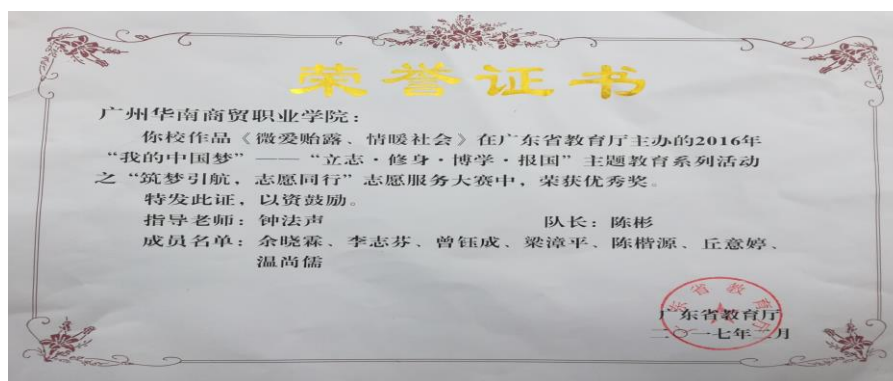 荣誉证书
广州华南商贸职业学院：
你校作品《微爱贻露、情暖社会》在广东省教育厅主办的2016年
“我的中国梦”——“立志·修身·博学·报国”主题教育系列活动
之“筑梦引航，志愿同行”志愿服务大赛中，荣获优秀奖。
特发此证，以资鼓励。
指导老师：钟法声 队长：陈彬
成员名单：余晓霖、李志芬、曾钰成、梁漳平、陈楷源、丘意婷、
温尚儒
广东省教育厅
二〇一七年二月